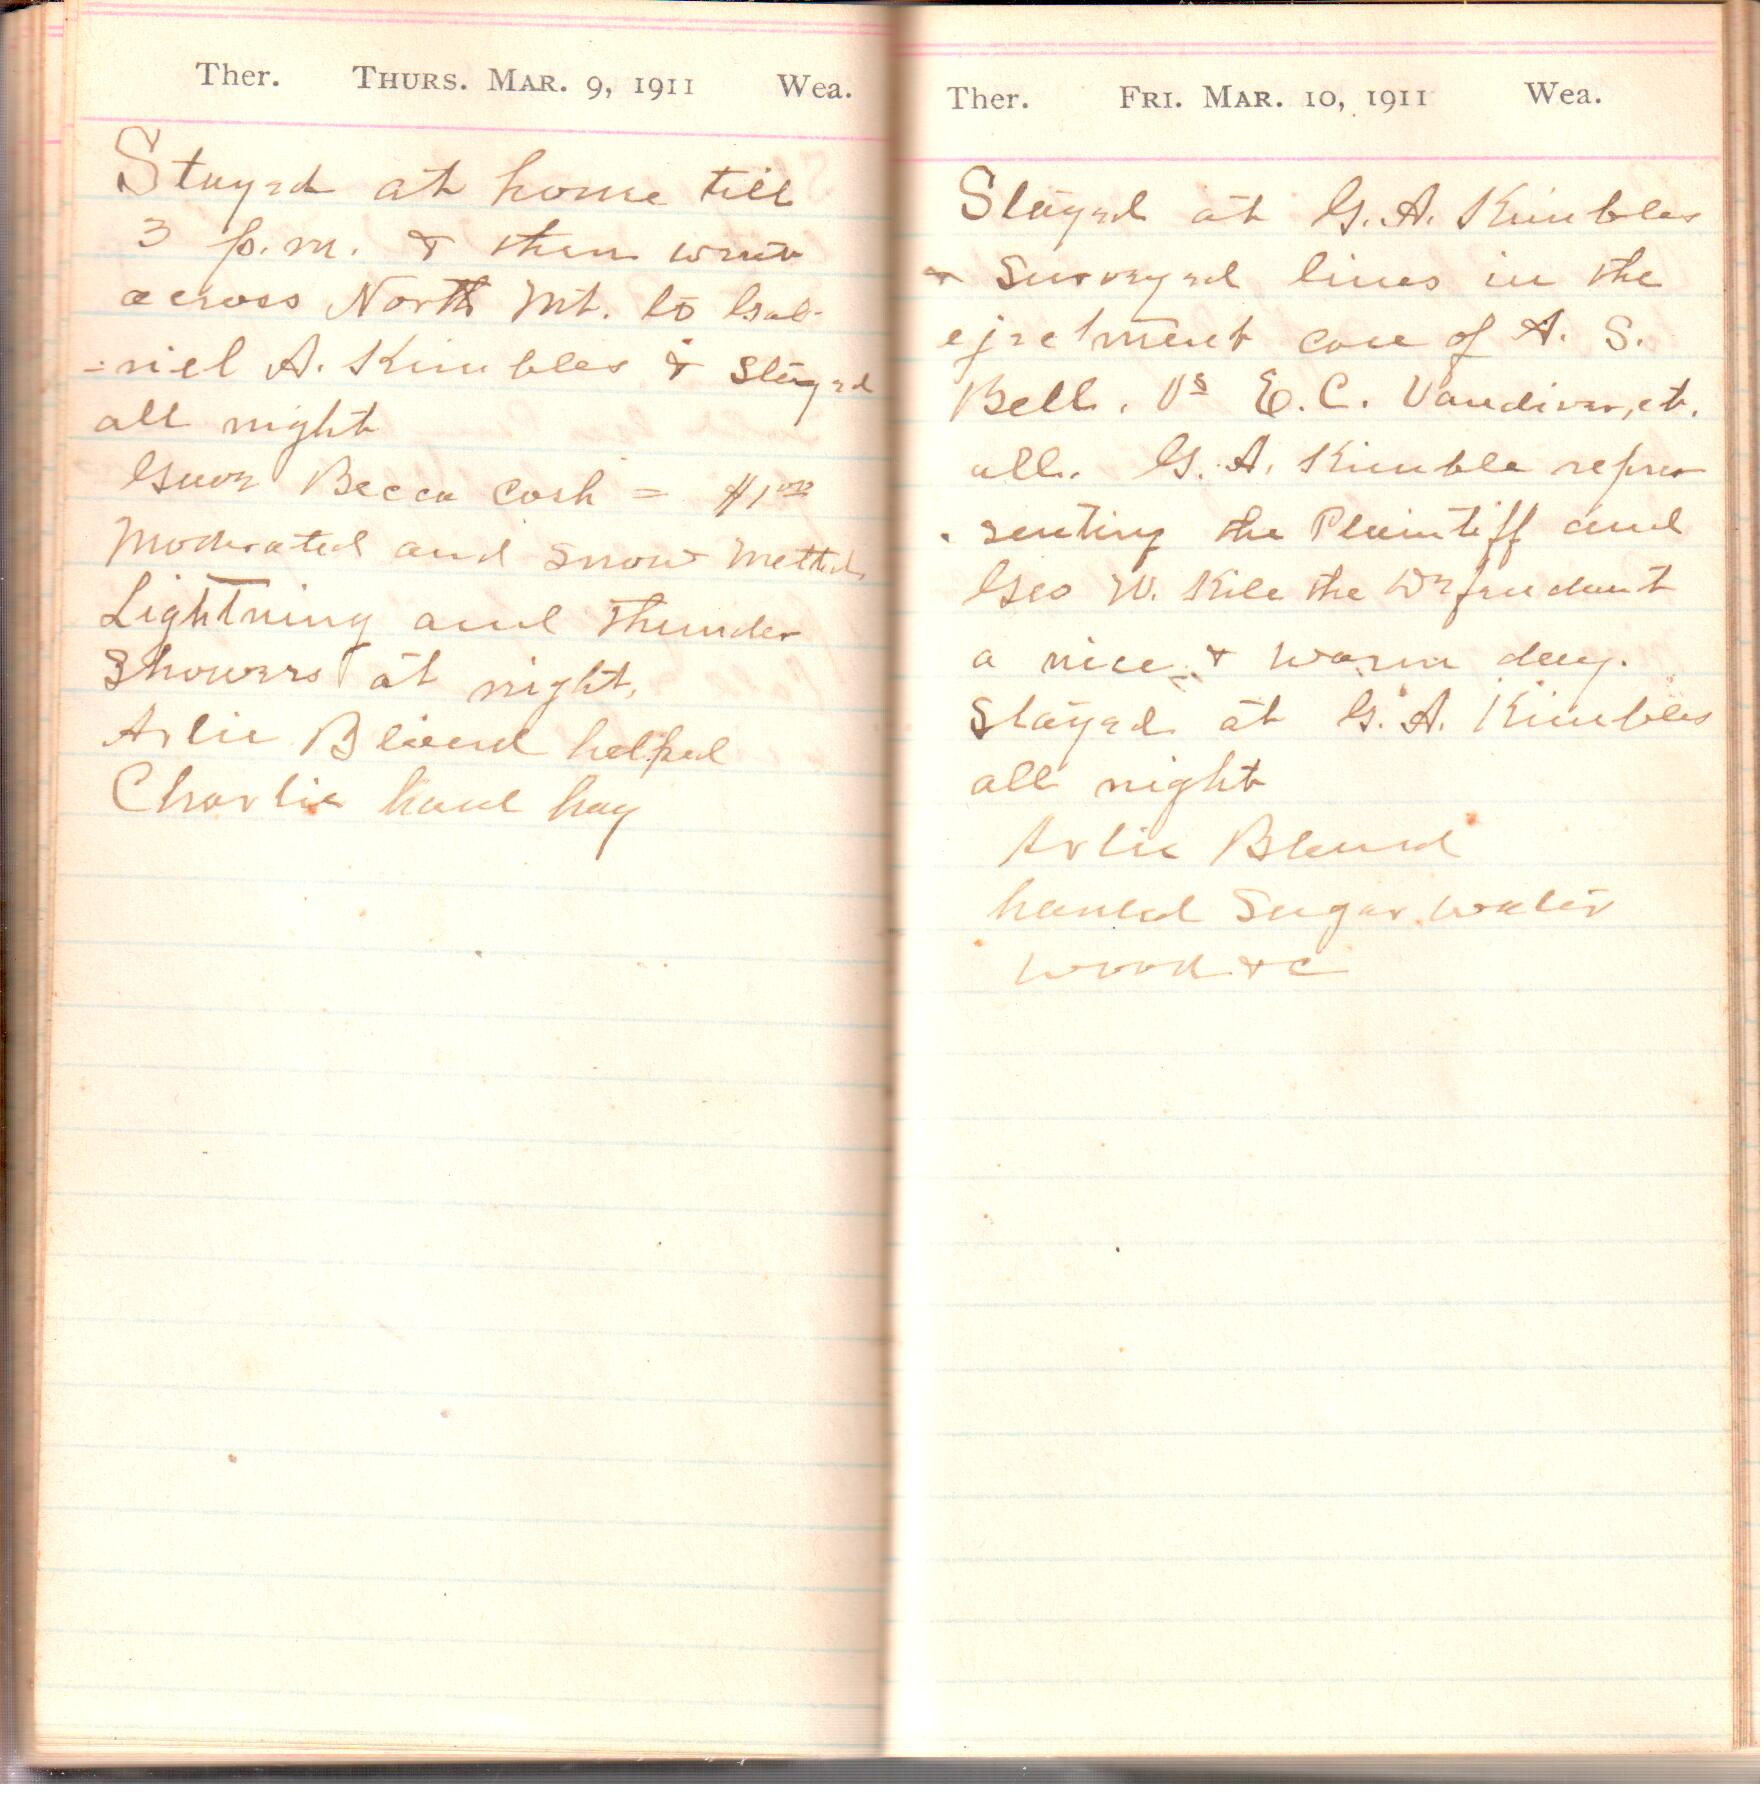 Ther. THURS. MAR. 9, 1911 Wea.
Stayed at home till
3 p.m. & then went
across North Mt. to Gab-
=riel A. Kimbles & stayed
all night
Gave Becca cash = $1.00
Moderated and snow melted
Lightning and Thunder
Showers at night,
Arlie Bland helped
Charlie haul hay
Ther. FRI. MAR. 10, 1911 Wea.
Stayed at G. A. Kimbles
& Surveyed lines in the
ejectment case of A. S.
Bell. Vs E. C. Vandiver, et.
all. G. A. Kimble repre
senting the Plaintiff and
Geo W. Kile the Defendant
a nice & warm day.
Stayed at G. A. Kimbles
all night
Arlie Bland
hauled Sugar water
wood &c